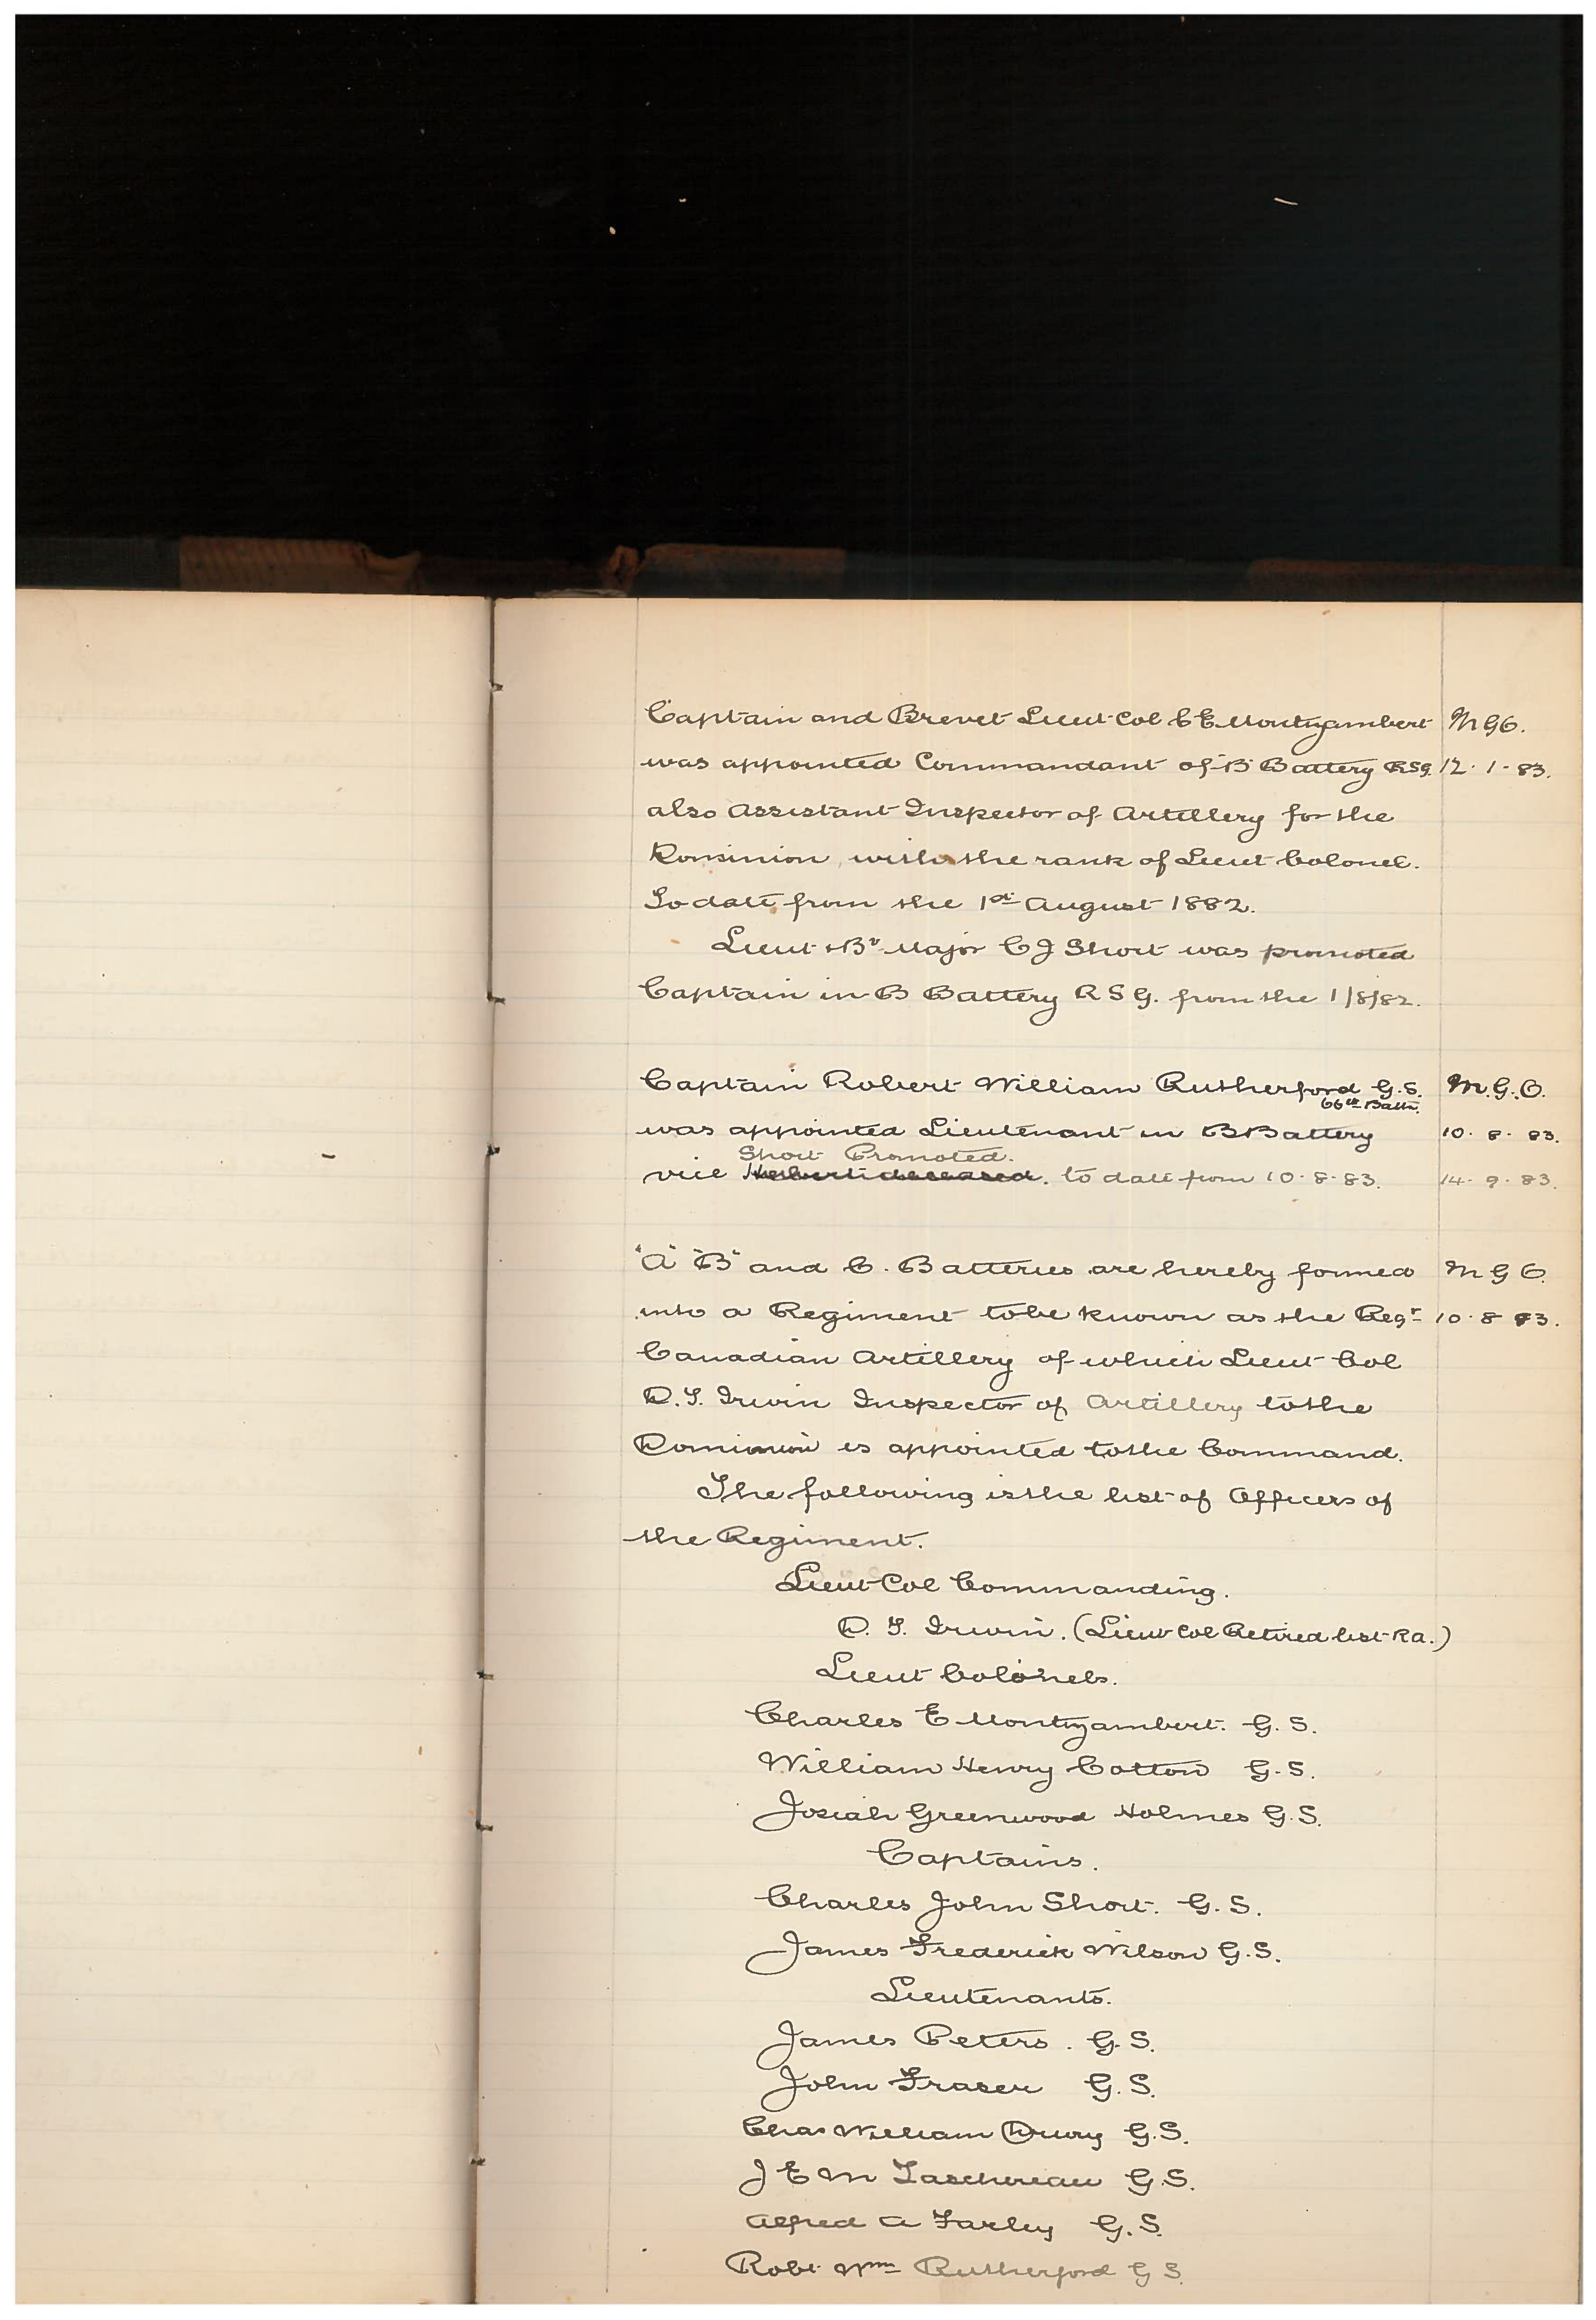 Captain and Brevet Lieut Col C E Montizambert M G O.
was appointed Commandant of B Battery R S G. 12.1.83.
also Assistant Inspector of Artillery for the
Dominion with the rank of Lieut Colonel.
To date from the 1st August 1882.
Lieut & Bt Major C J Short was promoted
Captain in B Battery R S G. from the 1/8/82.
Captain Robert William Rutherford G.S. M.G.O.
66th Battn.
was appointed Lieutenant in B Battery 10.8.83.
Short Promoted.
vice Herbert deceased. to date from 10.8.83. 14.9.83.
"A" "B" and C. Batteries are hereby formed M G O.
into a Regiment to be known as the Regt 10.8.83.
Canadian Artillery of which Lieut Col
D. T. Irwin Inspector of Artillery to the
Dominion is appointed to the Command.
The following is the list of Officers of
the Regiment.
Lieut Col Commanding.
D. T. Irwin. (Lieut Col Retired list R.A.)
Lieut Colonels.
Charles E Montizambert. G. S.
William Henry Cotton G. S.
Josiah Greenwood Holmes G.S.
Captains.
Charles John Short. G. S.
James Frederick Wilson G.S.
Lieutenants.
James Peters. G. S.
John Fraser G. S.
Chas William Drury G.S.
J E M Taschereau G.S.
Alfred A Farley G.S.
Robt Wm Rutherford G S.